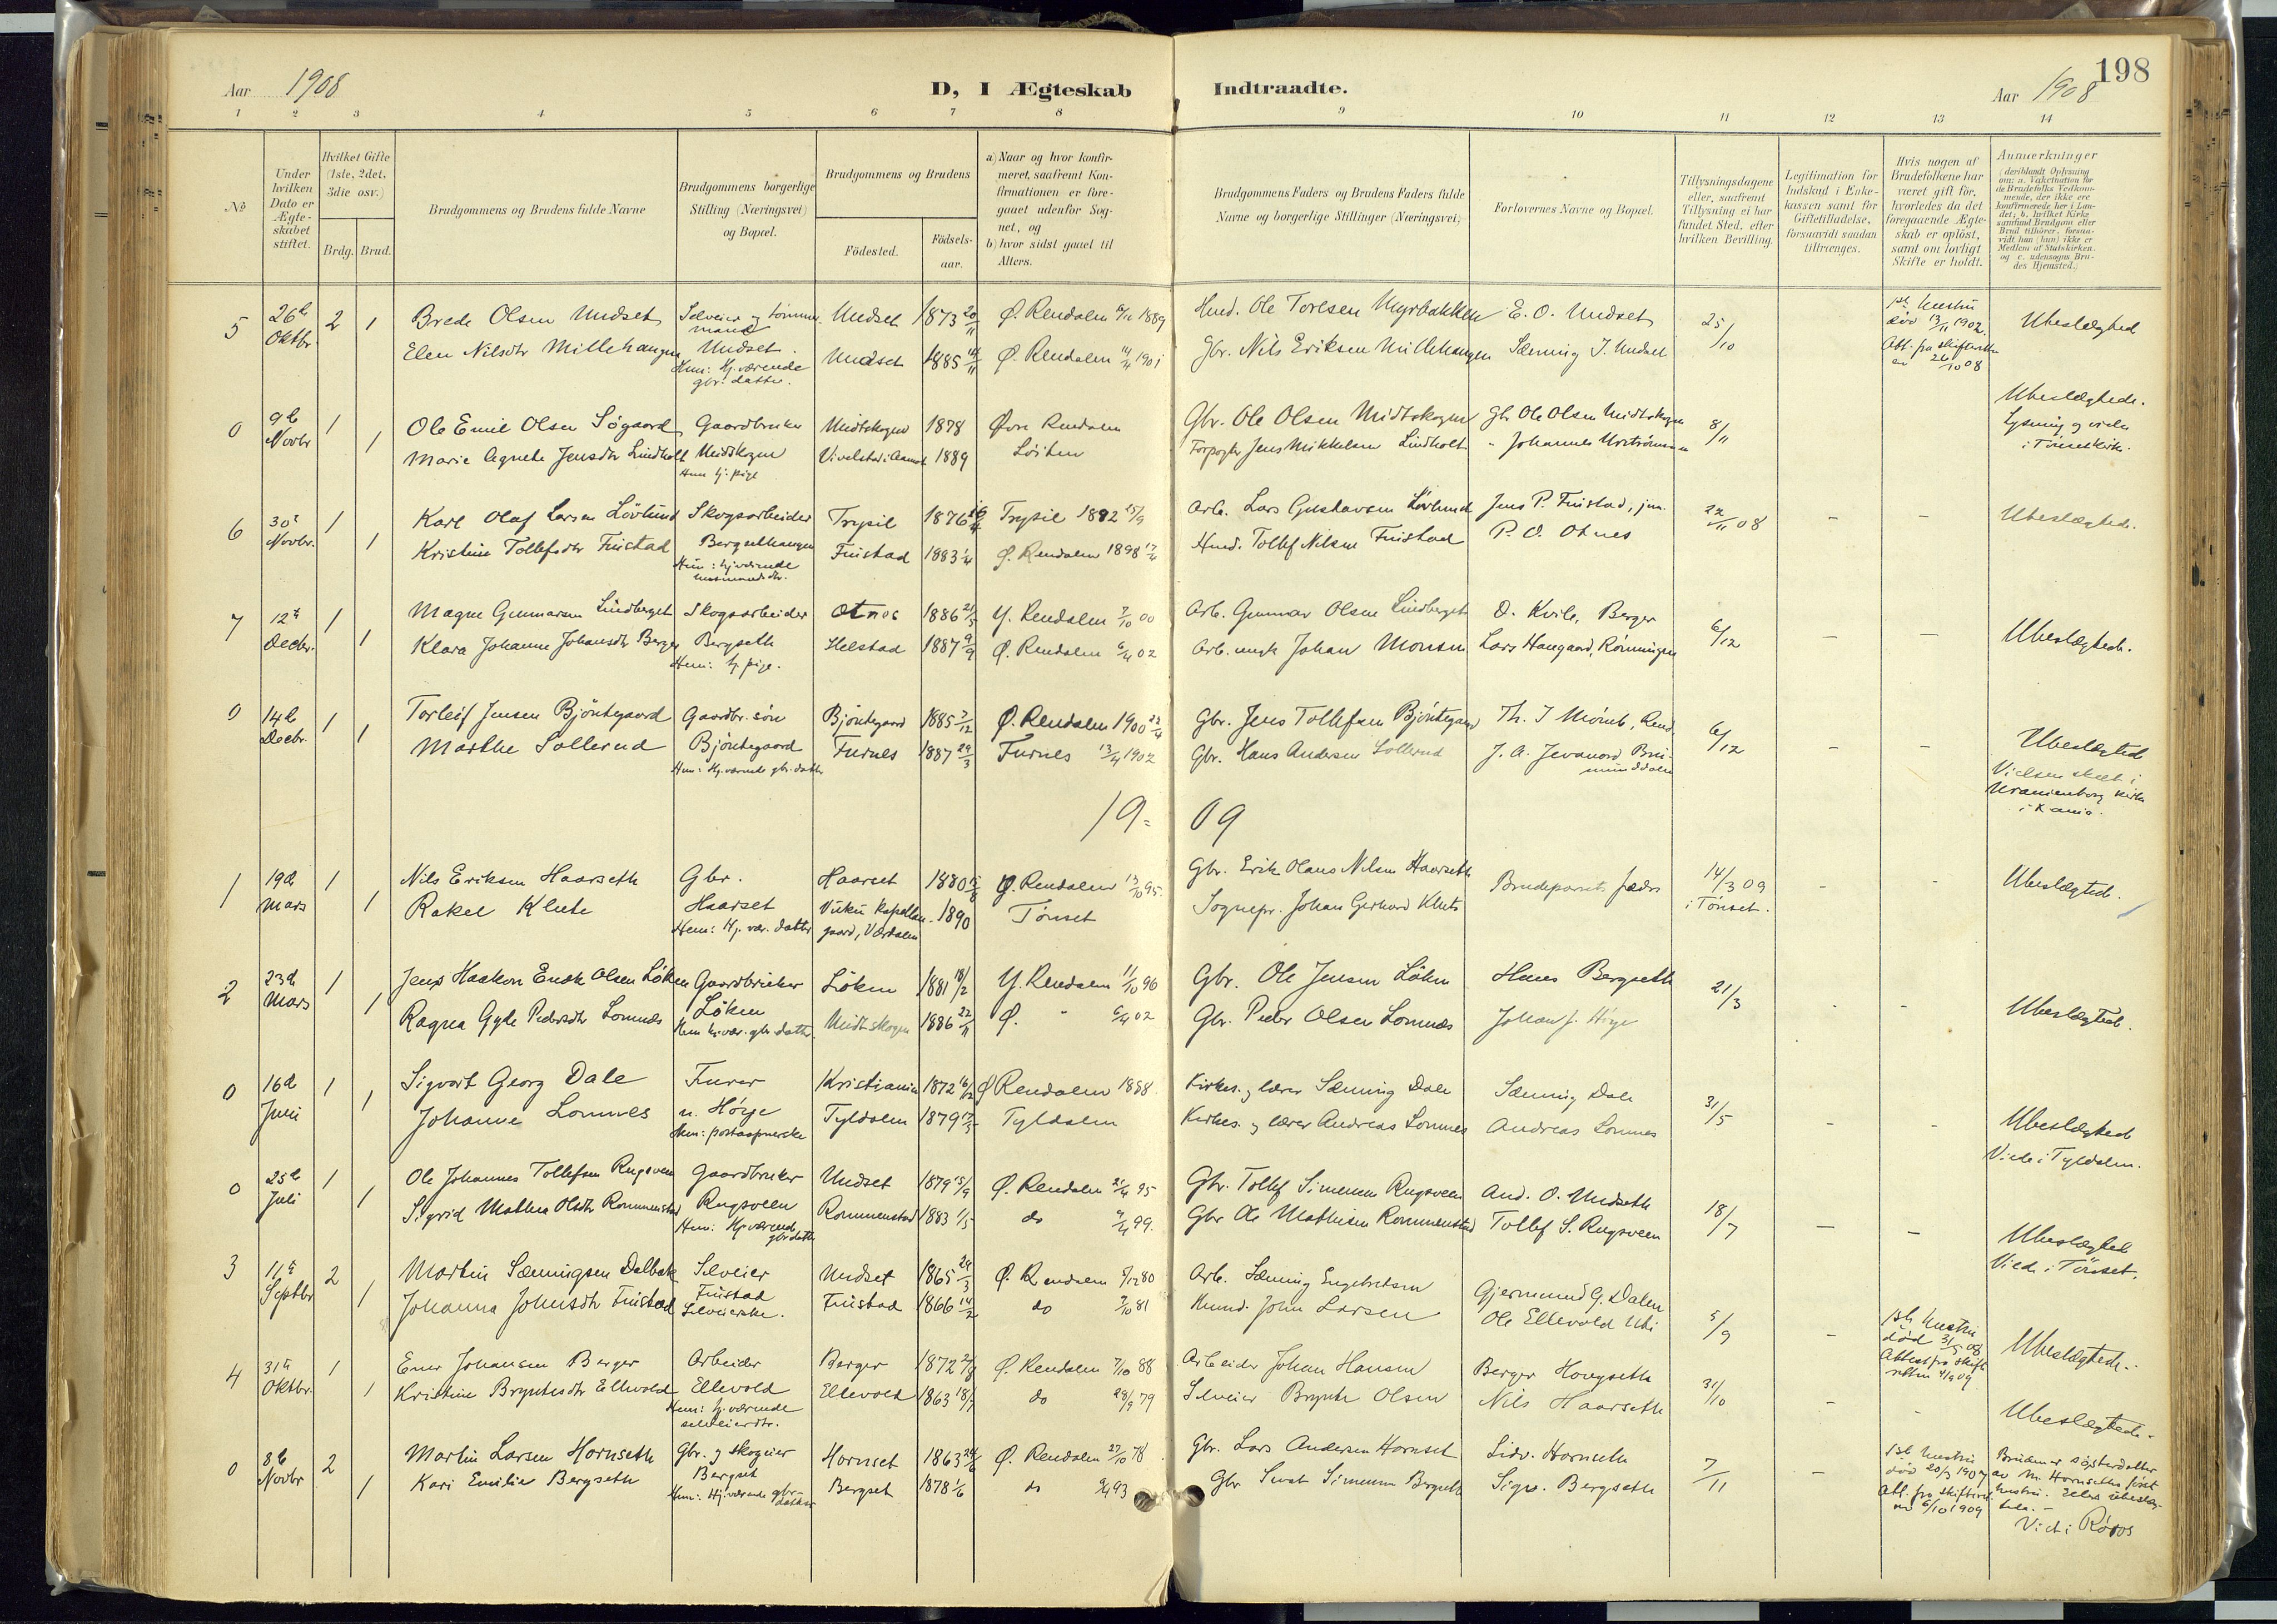 198
Aar 1908
D, I Ægteskab Indtraadte.
Aar 1908
1 2 3 4 5 6 7 8 9 10 11 12 13 14
No
Under hvilken Dato er Ægteskabet stiftet.
Hvilket Gifte (1ste, 2det, 3die osv.)
Brdg. Brud.
Brudgommens og Brudens fulde Navne
Brudgommens borgerlige Stilling (Næringsvei) og Bopæl.
Brudgommens og Brudens
Födested.
Födselsaar.
a) Naar og hvor konfirmeret, saafremt Konfirmationen er foregaaet udenfor Sognet, og
b) hvor sidst gaaet til Alters.
Brudgommens Faders og Brudens Faders fulde Navne og borgerlige Stillinger (Næringsvei)
Forlovernes Navne og Bopæl.
Tillysningsdagene eller, saafremt Tillysning ei har fundet Sted, efter hvilken Bevilling.
Legitimation for Indskud i Enkekassen samt for Giftetilladelse, forsaavidt saadan tiltrænges.
Hvis nogen af Brudefolkene har været gift för, hvorledes da det foregaaende Ægteskab er oplöst, samt om lovligt Skifte er holdt.
Anmerkninger (deriblandt Oplysning om: a. Vakcination for de Brudefolks Vedkommende, der ikke ere konfirmerede her i Landet; b. hvilket Kirkesamfund Brudgom eller Brud tilhörer, forsaavidt han (hun) ikke er Medlem af Statskirken, og c. udensogns Brudes Hjemsted.)
5 26de Oktbr 2 1 Brede Olsen Undset Selveier og tømmermand Undset 1873 20/11 Ø. Rendalen 6/10 1889 Husd. Ole Toresen Myrbakken E. O. Undset 25/10 1ste hustru död 13/11 1902. Att. fra skifteretten av 26/10 08 Ubeslægted
Elen Nilsdtr Millehaugen Undset. Hun: Hj. værende gbr. datter. Undset 1885 14/11 Ø. Rendalen 14/4 1901 Gbr. Nils Eriksen Millehaugen Sæming J. Undset
0 9de Novbr 1 1 Ole Emil Olsen Sögaard Gaardbruker Midtskogen 1878 Øvre Rendalen Gbr. Ole Olsen Midtskogen Gbr Ole Olsen Midtskogen 8/11 Ubeslægtede. Lysning og vielse i kirke.
Marie Agnete Jensdtr Lindholt Midtskogen Hun hj. pige 1889 Löiten Forpagter Jens Mikkelsen Lindholt " Johannes
6 30te Novbr. 1 1 Karl Olaf Larsen Lövlund Skogsarbeider Trysil 1876 Trysil 1892 25/9 Arb. Lars Gustavsen Lövlund Jens P. Fiustad, jun. 22/11 08 – – Ubeslægtede.
Kristine Tollefsdtr Fiustad Bergsethaugen Hun: hj. værende husmandsdtr. Fiustad 1883 1/4 Ø. Rendalen 1898 17/4 Husd. Tollef Nilsen Fiustad P. O. Otnes
7 12te Decbr. 1 1 Magne Gunnarsen Lindberget Skogsarbeider Otnes 1886 21/5 Y. Rendalen 7/10 00 Arb. Gunnar Olsen Lindberget O. Kvile, Berger 6/12 – – Ubeslægtede.
Klara Johanne Johansdtr Berger Bergseth Hun: hj. pige. Helstad 1887 9/9 Ø. Rendalen 6/4 02 Arb. Johan Monsen Lars Haugaard, Rönningen
0 14de Decbr. 1 1 Torleif Jensen Bjöntegaard Gaardbr. sön Bjöntegaard 1885 7/12 Ø. Rendalen 1900 22/4 Gbr. Jens Tollefsen Bjöntegaard Th. J Mömb, Rend. 6/12 – – Ubeslægted
Marthe Sollerud Bjöntegaard Hun: Hj. værende gbr. datter Furnes 1887 29/3 Furnes 13/4 1902 Gbr. Hans Andersen Sollerud J. A. Jevanord Brumunddalen Vielsen skedt i Uranienborg kirke i Kania.
19=09
1 19de Mars 1 1 Nils Eriksen Haarseth Gbr. Haarset 1880 5/8 Ø. Rendalen 13/10 95. Gbr. Erik Olaus Nilsen Haarseth Brudeparets fædre 14/3 09 i Tönset. - - Ubeslægted.
Rakel Klüte Haarset Hun: Hj. vær. datter Vuku Kapellangaard, Værdalen 1890 Tönset Sognepr. Johan Gerhard Klüts
2 23de Mars 1 1 Jens Haakon Enok Olsen Löken Gaardbruker Löken 1881 18/2 Y. Rendalen 11/10 96 Gbr. Ole Jensen Löken Hans Bergseth 21/3 - - Ubeslægted.
Ragna Gyde Pedersdtr Lomnæs Löken Hun hj. vær. gbr. datter. Midtskogen 1886 22/11 Ø. " 6/4 02 Gbr. Peder Olsen Lomnæs Johan J. Höye
0 16de Juni 1 1 Sigvart Georg Dale Furer Kristiania 1872 16/12 Ø Rendalen 1888. Kirkes. og lærer Sæming Dale Sæming Dale 31/5 - - Ubeslægted
Johanne Lomnes n. Höye Hun: postaapnerske Tyldalen 1879 17/5 Tyldalen Kirkes. og lærer Andreas Lomnes Andreas Lomnes Viede i Tyldalen.
0 25de Juli 1 1 Ole Johannes Tollefsen Rugsveen Gaardbruker Undset 1879 15/9 Ø. Rendalen 21/4 95 Gbr. Tollef Simensen Rugsveen And. O. Undseth 18/7 – – Ubeslægted
Sigrid Mathea Olsdtr Rommenstad Rugsveen Hun: Hj. værende gbr datter Rommenstad 1883 1/5 do 9/4 99. Gbr Ole Mathisen Rommenstad Tollef S. Rugsveen Viede i Tönset.
3 11te Septbr 2 1 Martin Sæmingsen Dalbak Selveier Undset 1865 24/3 Ø. Rendalen 5/12 80 Arb. Sæming Engebretsen Gjermund G. Dalen 5/9 - 1ste hustru död 31/5 08 Attest fra skifteretten 4/9 09 Ubeslægtede.
Johanna Johnsdtr Fiustad Fiustad Selveierske. Fiustad 1866 14/2 do 7/10 81 Husmd. John Larsen Ole Ellevold Uti
4 31te Oktbr. 1 1 Ener Johansen Berger Arbeider Berger 1872 2/8 Ø. Rendalen 7/10 88 Arbeider Johan Hansen Berger Hougseth 31/10 - - Ubeslægtede.
Kristine Bryntesdtr Ellevold Ellevold Hun: hj. værende selveierdtr. Ellevold 1863 18/7 do 28/9 79 Selveier Brynte Olsen Nils Haarseth
0 8de Novbr 2 1 Martin Larsen Hornseth Gbr. og skogeier Hornset 1863 24/6 Ø. Rendalen 27/10 78. Gbr. Lars Andersen Hornset Sidv. Hornseth 7/11 – 1ste hustru död 20/3 1907 Att. fra skifteret. av 6/10 1909 Bruden er søsterdatter av M. Hornseths først hustru. Ellers
Kari Emilie Bergseth Bergset Hun: Hj. værende gbr. datter Bergset 1878 1/6 do 9/4 93 Gbr Simensen Bergseth Sigv. Bergseth Viet i Röros